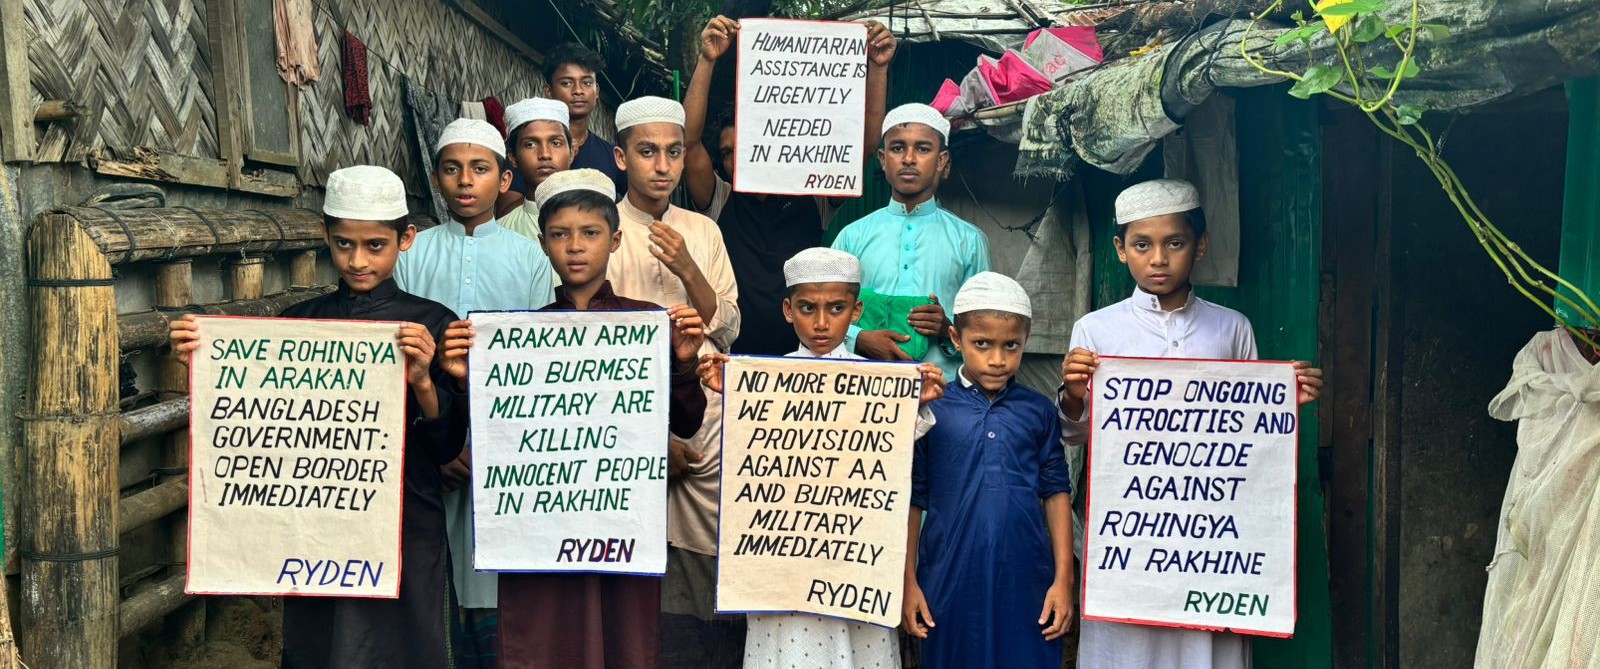 HUMANITARIAN
ASSISTANCE IS
URGENTLY
NEEDED
IN RAKHINE
RYDEN
SAVE ROHINGYA
IN ARAKAN
BANGLADESH
GOVERNMENT:
OPEN BORDER
IMMEDIATELY
RYDEN
ARAKAN ARMY
AND BURMESE
MILITARY ARE
KILLING
INNOCENT PEOPLE
IN RAKHINE
RYDEN
NO MORE GENOCIDE
WE WANT ICJ
PROVISIONS
AGAINST AA
AND BURMESE
MILITARY
IMMEDIATELY
RYDEN
STOP ONGOING
ATROCITIES AND
GENOCIDE
AGAINST
ROHINGYA
IN RAKHINE
RYDEN